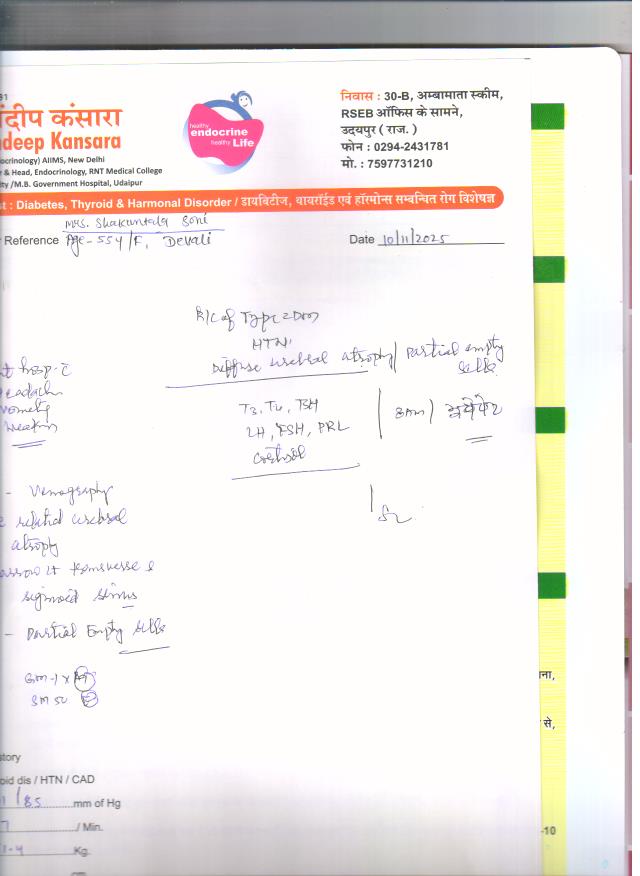 31
ंदीप कंसारा
ndeep Kansara
ocrinology) AIIMS, New Delhi
r & Head, Endocrinology, RNT Medical College
ity /M.B. Government Hospital, Udaipur
healthy
endocrine
healthy Life
निवास : 30-B, अम्बामाता स्कीम,
RSEB ऑफिस के सामने,
उदयपुर ( राज. )
फोन : 0294-2431781
मो. : 7597731210
st : Diabetes, Thyroid & Harmonal Disorder / डायबिटीज, थायरॉईड एवं हॉरमोन्स सम्बन्धित रोग विशेषज्ञ
Mrs. Shakuntala Soni
Reference Age - 55y/F, Devali
Date 10/11/2025
of Type 2 DM
HTN
Diffuse cerebral atrophy / Partial empty
sella
T3, T4, TSH
LH, FSH, PRL
Cortisol
8 AM
hosp. c
eadach
vomiting
weakn
- Venography
cerebral
atrophy
arrow Lt transverse &
sigmoid sinus
- Partial Empty sella
story
oid dis / HTN / CAD
/ 85 mm of Hg
7 / Min.
1.4 Kg.
cm
ना,
से,
-10